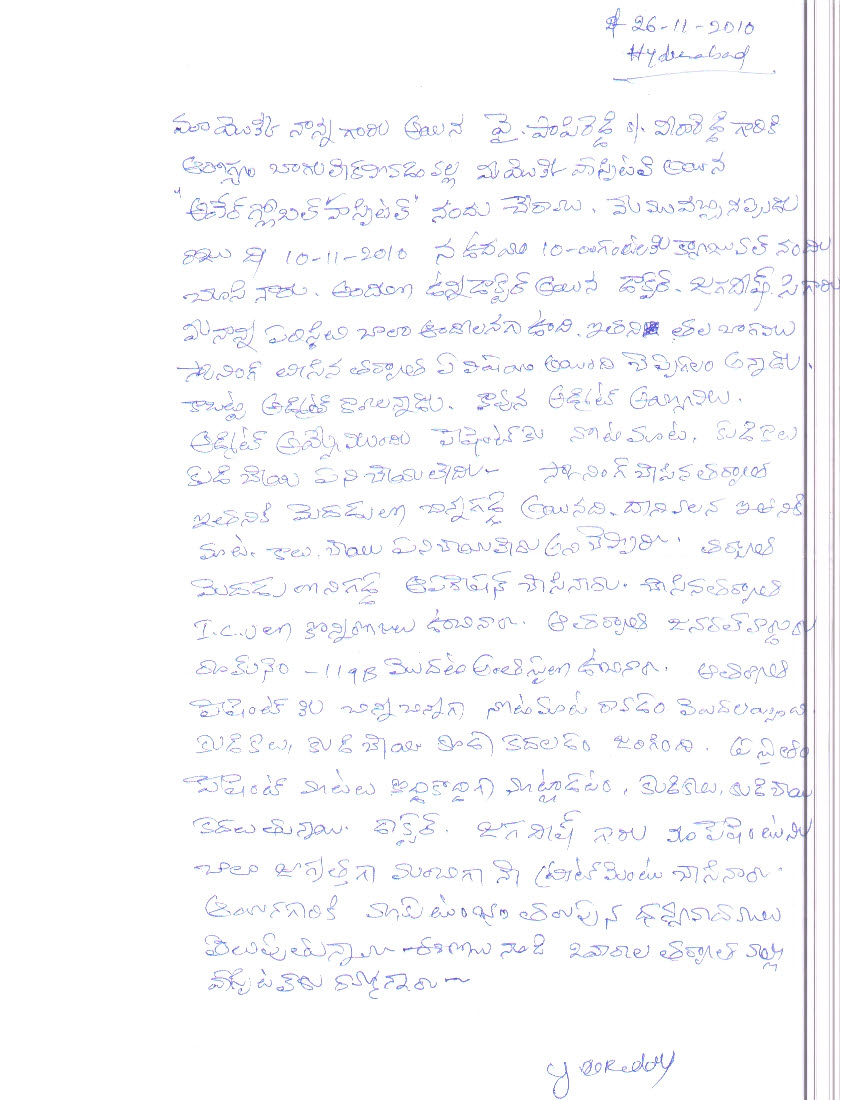 26-11-2010
Hyderabad
మా యొక్క నాన్న గారు అయిన వై. పాపిరెడ్డి s/. వీరారెడ్డి గారికి
ఆరోగ్యం బాగులేకపోవడం వల్ల మీ యొక్క హాస్పిటల్ అయిన
"అవేర్ గ్లోబల్ హాస్పిటల్" నందు చేరాము. మేము వచ్చినప్పుడు
10-11-2010 న ఉదయం 10-గంటలకు నందు
చూసినారు. అందులో ఉన్న డాక్టర్ అయిన డాక్టర్. జగదీష్. సి గారు
మీ నాన్న పరిస్థితి చాలా ఆందోలనగా ఉంది. ఇతనికి తల బాగము
స్కానింగ్ తీసిన తర్వాత ఏ విషయం అయింది చెప్పగలం అన్నాడు.
కాబట్టి అడ్మిట్ కావాలన్నాడు. అడ్మిట్ అయ్యాము.
అడ్మిట్ అయ్యేముందు పేషెంట్ కు నోటమాట, కుడికాలు
కుడి చేయి పని చేయలేదు- స్కానింగ్ చేసిన తర్వాత
ఇతనికి మెదడులో చిన్నగడ్డ అయినది. దాని వలన ఇతనికి
మాట. కాలు. చేయి పనిచేయలేదు అని చెప్పారు. తర్వాత
మెదడులోని గడ్డ ఆపరేషన్ చేసినారు. చేసిన తర్వాత
I.C.U లో కొన్ని రోజులు ఉంచినారు. ఆ తర్వాత జనరల్ వార్డు
రూమ్ నెం -119B మొదటి అంతస్తులో ఉంచినారు. ఆ తర్వాత
పేషెంట్ కు చిన్న చిన్నగా నోటమాట రావడం మొదలయ్యింది.
కుడికాలు, కుడి చేయి కూడా కదలడం జరిగింది. ప్రస్తుతం
పేషెంట్ మాటలు కొద్దికొద్దిగా మాట్లాడటం, కుడికాలు, కుడిచేయి
కదలుతున్నాయి. డాక్టర్. జగదీష్ గారు మా పేషెంటుని
చాలా జాగ్రత్తగా మంచిగా ట్రీట్‌మెంటు చేసినారు.
అందుకుగారికి మా కుటుంబం తరుపున ధన్యవాదములు
తెలుపుతున్నాము- ఈరోజు నుండి 2 వారాల తర్వాత మళ్ళీ
హాస్పిటల్‌కు రమ్మన్నారు-